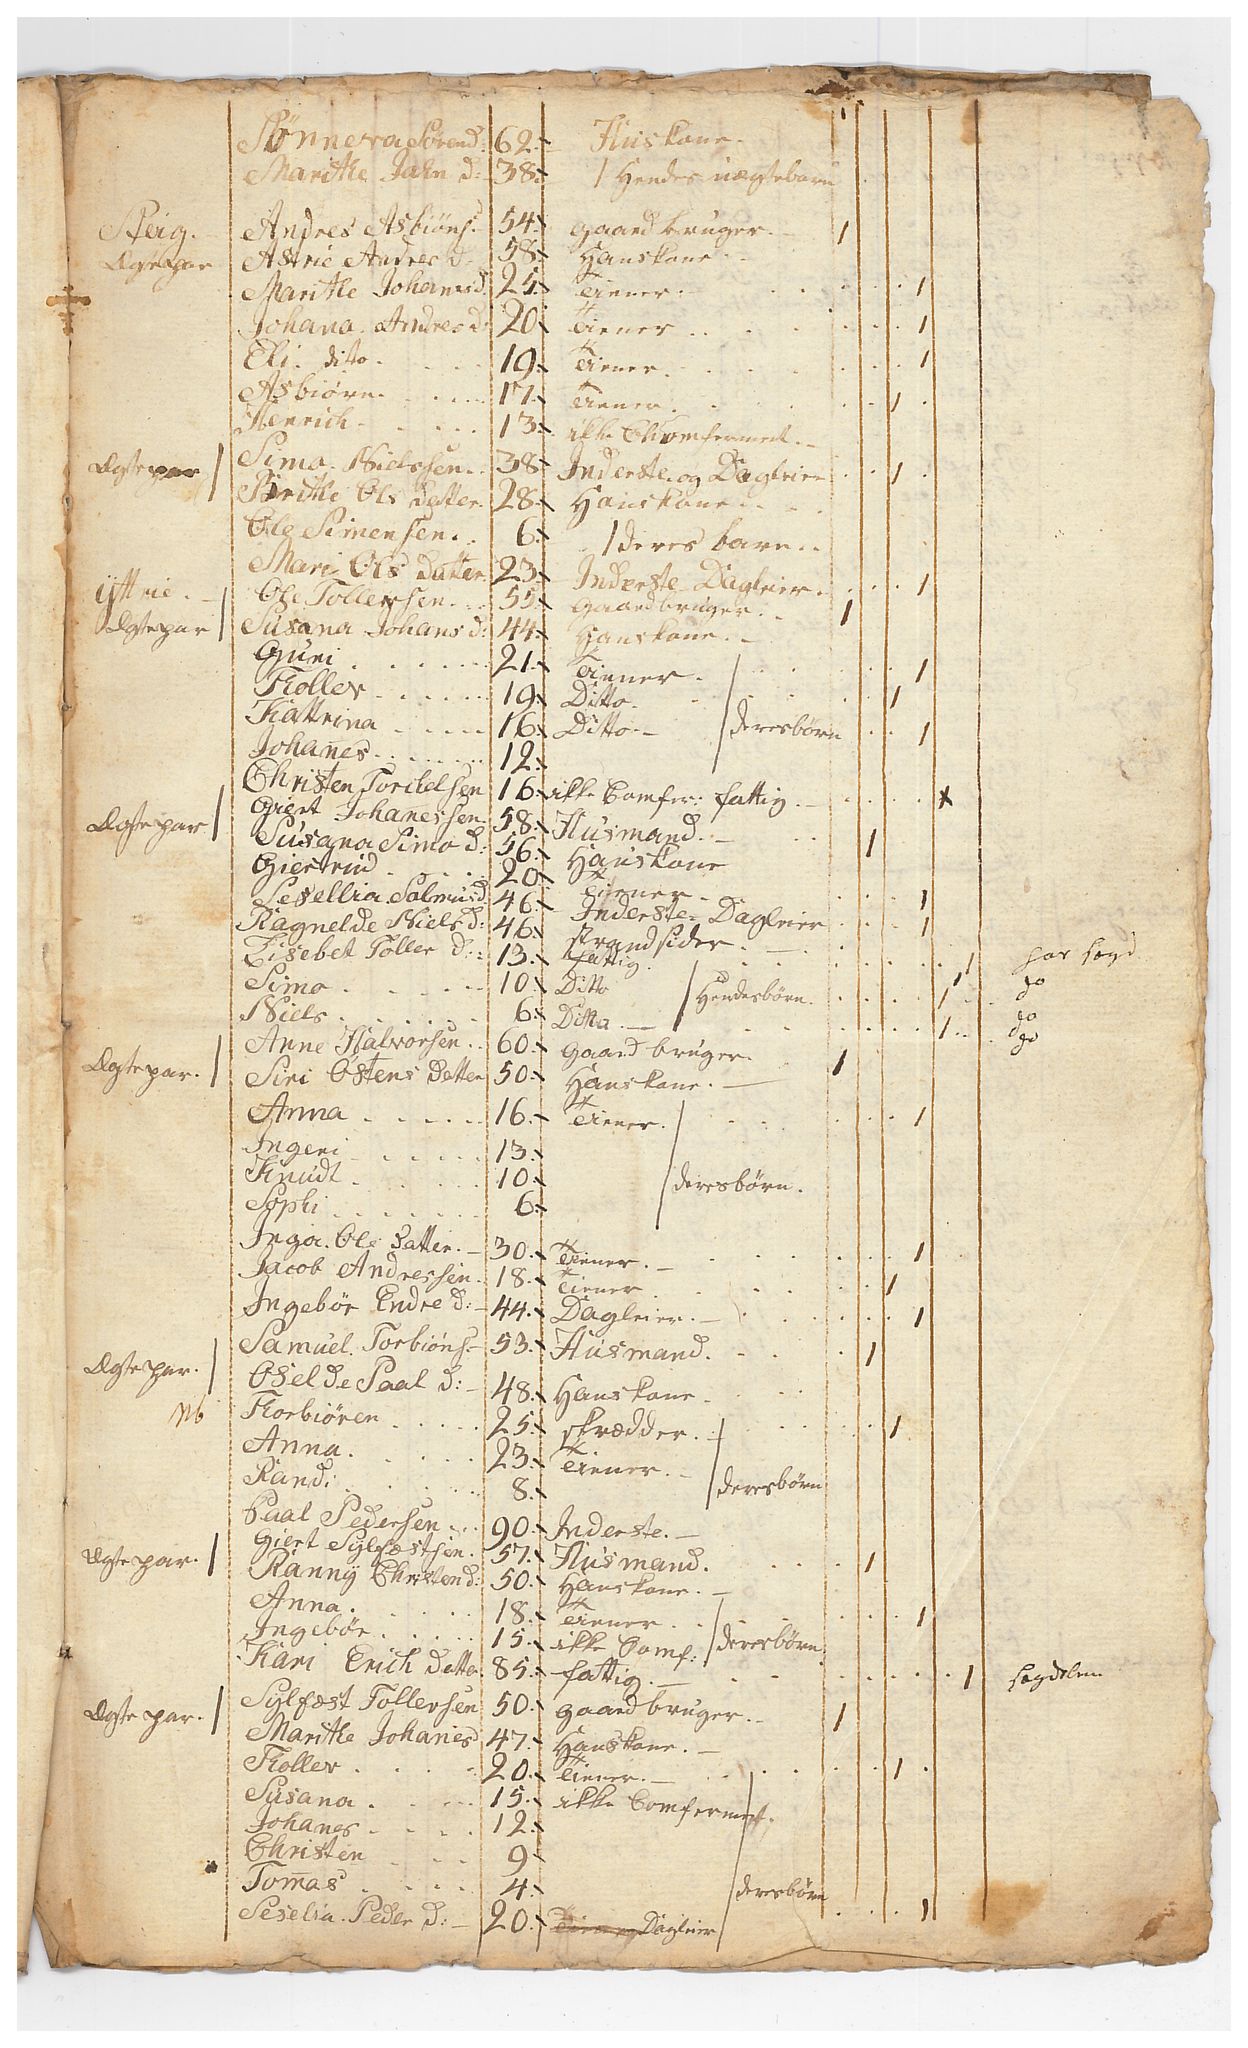 Sønneva Sørend: 62. Huskone.
Marithe Jahn d: 38. / Hendes uægtebarn
Steig. Andres Asbiøns. 54. gaard bruger. 1
Ægtepar Astrie Andres d. 58. Hans kone.
Marithe Johanesd. 25. Tiener. 1
Johana Andres d: 20 Tiener 1
Eli ditto. 19. Tiener. 1
Asbiørn. 17. Tiener. 1
Henrich. 13. ikke Comfermert.
Ægtepar / Simo. Nielssen. 38 Inderste og Dagleier 1
Birithe Ols Datter. 28. Hans kone.
Ole Simensen. 6. / deres barn.
Mari Ols Datter. 23. Inderste Dagleier. 1
Yttrie. Ole Tollefsen. 55. Gaardbruger. 1
Ægtepar / Susana Johans d: 44. Hans kone.
Guri 21. Tienner. 1
Tollev 19. Ditto. 1
Kattrina 16. Ditto. / deresbørn 1
Johanes 12.
Christen Torkelsen 16. ikke Comfer: fattig. x
Ægtepar / Giert Johanessen. 58. Husmand. 1
Susana Simo d: 56. Hans kone
Giertrud 20. Tiener. 1
Sesellia Salmusd. 46. Inderste Dagleier 1
Ragnelde Niels d: 46. strandsider.
Lisebet Toller d: 13. fattig. 1 har Lægd
Simo 10. Ditto / Hendesbørn. 1 do
Niels 6. Ditto. 1 do
do
Ægtepar. / Anne Halvorsen. 60. Gaard bruger. 1
Siri Østens Datter 50. Hans kone.
Anna 16. Tiener. 1
Ingeri 13.
Knudt 10. / deresbørn.
Sophi 6.
Inga. Ole Datter. 30. Tiener. 1
Jacob Andressen. 18. Tiener 1
Ingebør Endre d: 44. Dagleier. 1
Ægtepar. / Samuel. Torbiøns. 53. Husmand. 1
Oselde Paal d: 48. Hans kone.
Nb Torbiøren 25. skrædder. 1
Anna. 23. Tiener.
Rand: 8. / deresbørn
Paal Pedersen 90. Inderste.
Ægtepar. / Giert Sylfæstsen. 57. Husmand. 1
Ranny Christen d: 50. Hans kone.
Anna. 18. Tiener. 1
Ingebør. 15. ikke Comf: / deresbørn
Kari Erich Datter. 85. fattig. 1 Lægdslem
Ægtepar. / Sylfæst Tollevsen 50. gaard bruger. 1
Marithe Johanesd 47. Hans kone.
Tollev 20. Tiener. 1
Susana. 15. ikke Comfermert.
Johanes 12.
Christen 9
Tomas 4. / deresbørn
Seselia. Peder d: 20. Tiener Dagleier 1